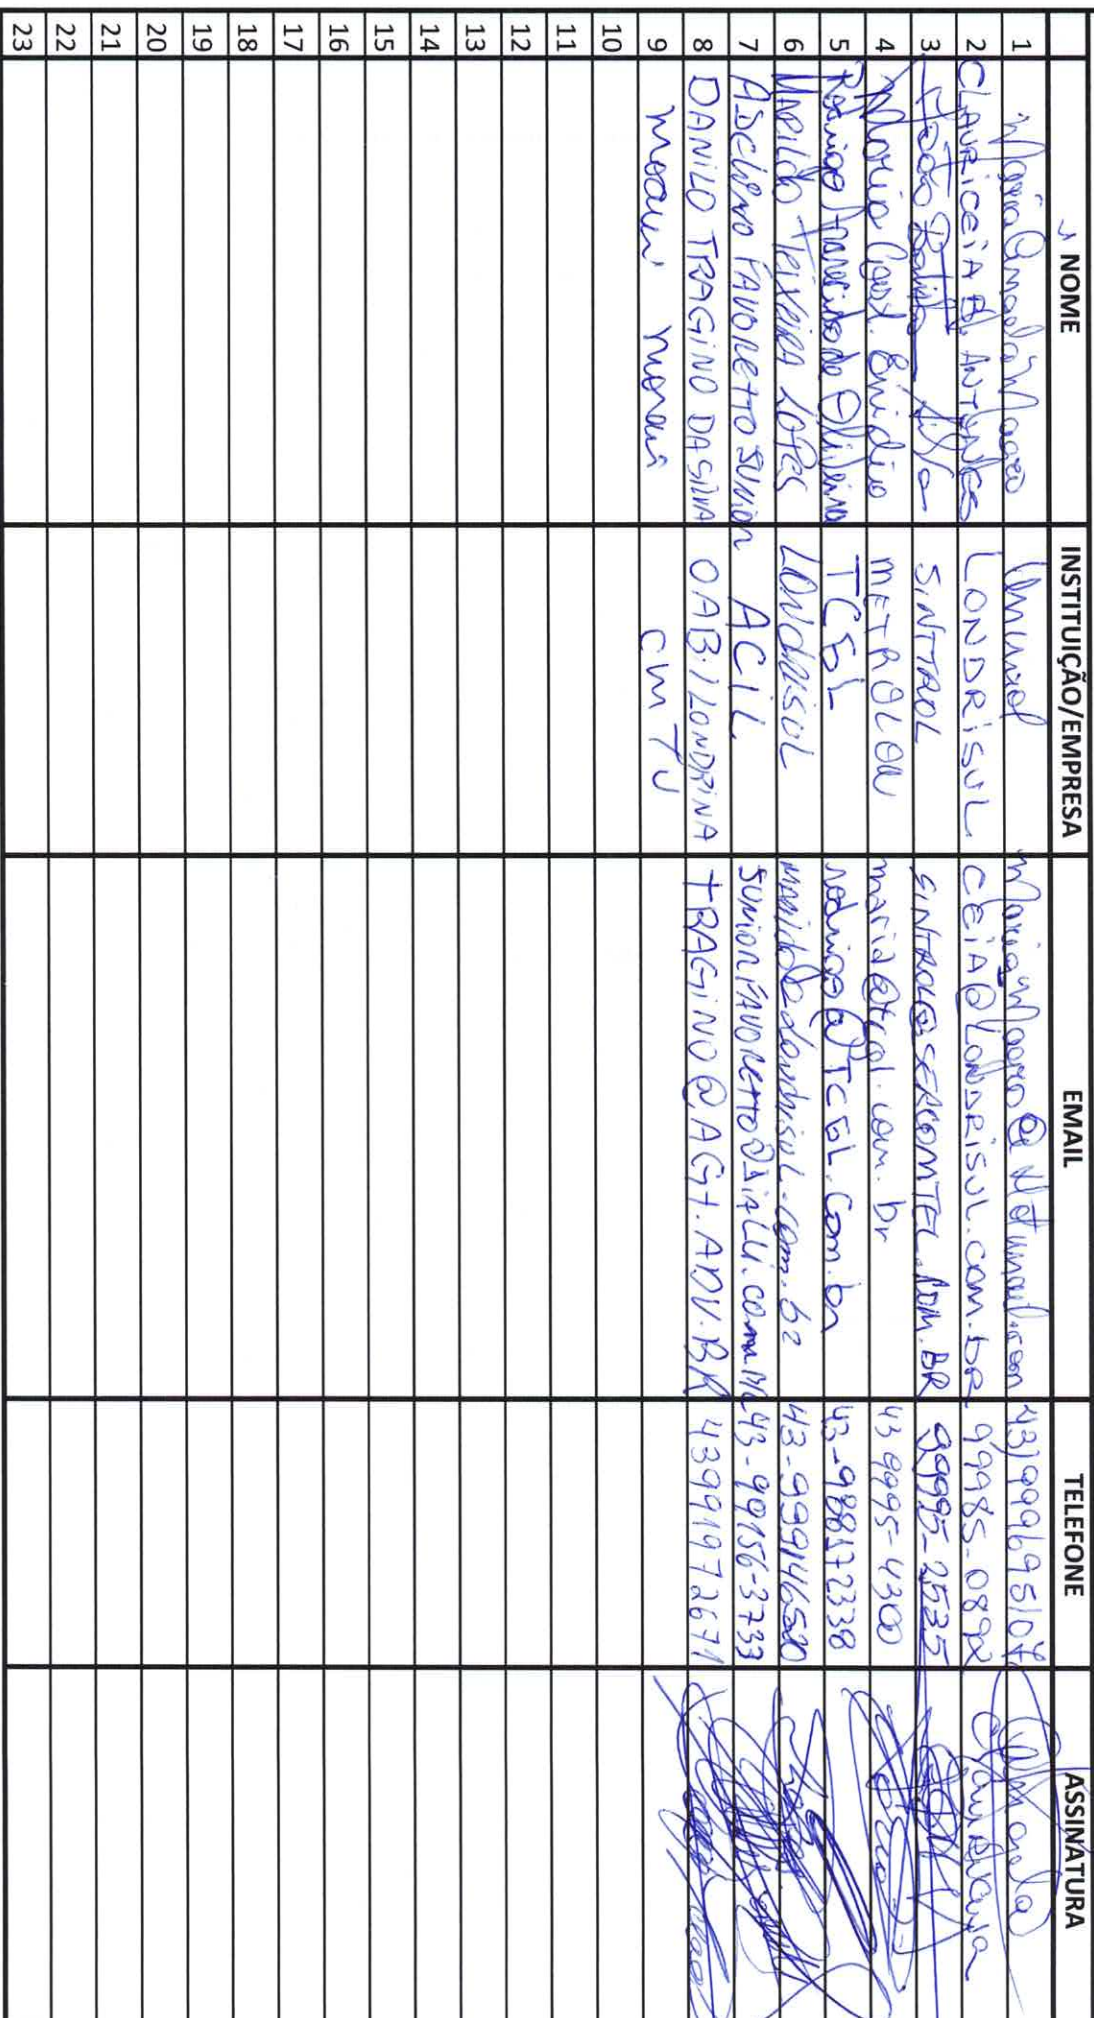 NOME INSTITUIÇÃO/EMPRESA EMAIL TELEFONE ASSINATURA
1 Maria Angela Magro Unimol MariaMagro@Hotmail.com 43)999695107
2 CLAURICEIA A. ANTUNES LONDRISUL CEIA@LONDRISUL.COM.BR 99985-0892
3 João Batista Silva SINTTROL SINTROL@SERCOMTEL.COM.BR 99995-2535
4 Maria Enidio METROLON maria@tcgl.com.br 43 9995-4300
5 Rodrigo Aparecido de Oliveira TCGL rodrigo@TCGL.Com.br 43-988172338
6 MARILDO TEIXEIRA LOPES LONDRISUL MARILDO@londrisul.com.br 43-999146520
7 FAVORETTO JUNIOR ACIL 43-99156-3733
8 DANILO TRAGINO DA SILVA OAB/LONDRINA TRAGINO@AGT.ADV.BR 43991972671
9 Moacir CMTU
10
11
12
13
14
15
16
17
18
19
20
21
22
23